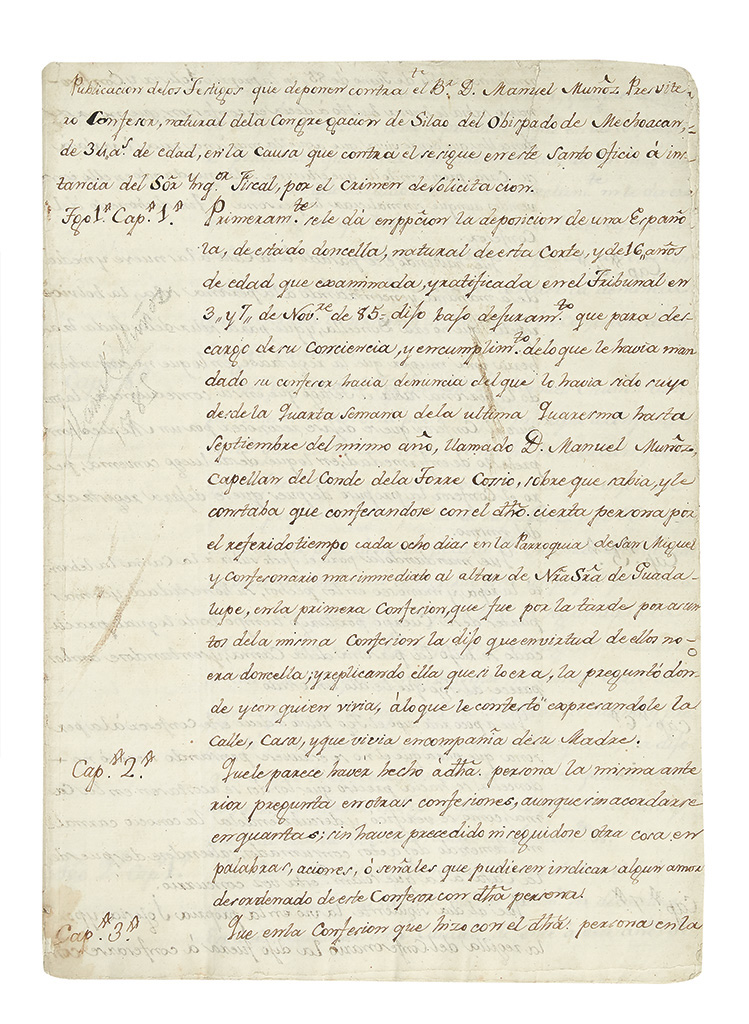 Publicacion delos Testigos que deponen contra el Br. D. Manuel Muñoz Presvite-
ro Confesor, natural dela Congregacion de Silao del Obispado de Mechoacan,
de 34 as. de edad, en la causa que contra el se sigue en este Santo Oficio á ins-
tancia del Sōr Ynqor. Fiscal, por el crimen de solicitacion.
Tgo 1º. Capº. 1º.
Primeramte. se le dá en ppċion la deposicion de una Españo
la, de estado doncella, natural de esta Corte, y de 16,, años
de edad que examinada, y ratificada en el Tribunal en
3,, y 7,, de Novre. de 85= dijo bajo de juramto. que para des-
cargo de su conciencia, y en cumplimto. de lo que le havia man
dado su confesor hacia denuncia del que lo havia sido suyo
desde la Quarta Semana de la ultima Quaresma hasta
Septiembre del mismo año, llamado D. Manuel Muñoz,
Capellan del Conde dela Torre Cossio, sobre que sabia, y le
constaba que confesandose con el dtħo. cierta persona por
el referido tiempo cada ocho dias en la Parroquia de San Miguel
y confesonario mas immediato al altar de Nr̄a Sr̄a de Guada-
lupe, en la primera Confesion, que fue por la tarde por asun
tos dela misma Confesion la dijo que en virtud de ellos no
era doncella; y replicando ella que si lo era, la preguntó don-
de y con quien vivia, á lo que le contestó expresandole la
Calle, Casa, y que vivia en compañia de su Madre.
Capº. 2º.
Que le parece haver hecho á dtħa. persona la misma ante
rior pregunta en otras confesiones, aunque sin acordarse
en quantas; sin haver precedido ni seguidose otra cosa en
palabras, acciones, ó señales que pudiesen indicar algun amor
desordenado de este Confesor con dtħa persona.
Capº. 3º.
Que en la Confesion que hizo con el dtħo. persona en la